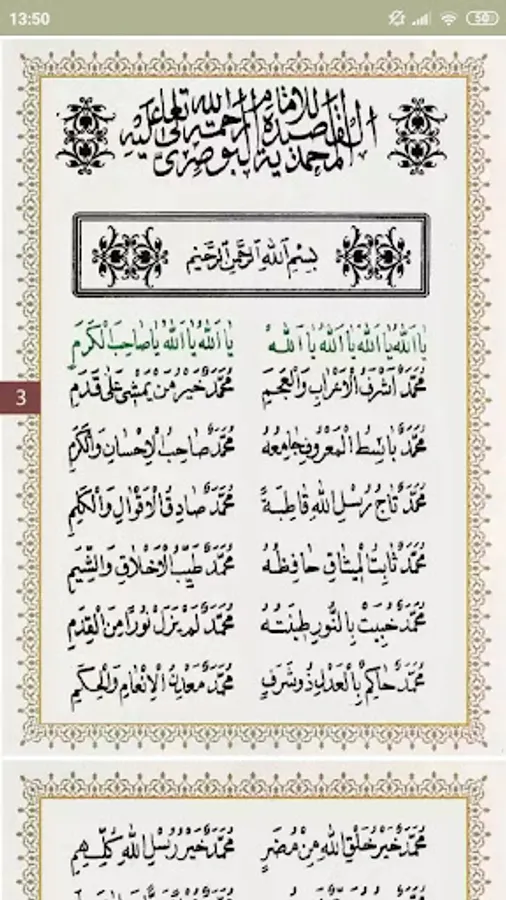 13:50
50
القصيدة المحمدية للامام البوصرى رحمة الله تعالى عليه
بِسْمِ اللهِ الرَّحْمٰنِ الرَّحِيْمِ
يَا اَللهُ يَا اَللهُ يَا اَللهُ يَا اَللهُ يَا اَللهُ يَا اَللهُ يَا صَاحِبَ الْكَرَمِ
مُحَمَّدٌ اَشْرَفُ الْاَعْرَابِ وَالْعَجَمِ مُحَمَّدٌ خَيْرُ مَنْ يَمْشِىْ عَلٰى قَدَمِ
3
مُحَمَّدٌ بَاسِطُ الْمَعْرُوْفِ جَامِعُهُ مُحَمَّدٌ صَاحِبُ الْاِحْسَانِ وَالْكَرَمِ
مُحَمَّدٌ تَاجُ رُسْلِ اللهِ قَاطِبَةً مُحَمَّدٌ صَادِقُ الْاَقْوَالِ وَالْكَلِمِ
مُحَمَّدٌ ثَابِتُ الْمِيْثَاقِ حَافِظُهُ مُحَمَّدٌ طَيِّبُ الْاَخْلَاقِ وَالشِّيَمِ
مُحَمَّدٌ خُبِيَتْ بِالنُّوْرِ طِيْنَتُهُ مُحَمَّدٌ لَمْ يَزَلْ نُوْرًا مِنَ الْقِدَمِ
مُحَمَّدٌ حَاكِمٌ بِالْعَدْلِ ذُوْ شَرَفٍ مُحَمَّدٌ مَعْدِنُ الْاِنْعَامِ وَالْحِكَمِ
مُحَمَّدٌ خَيْرُ خَلْقِ اللهِ مِنْ مُضَرٍ مُحَمَّدٌ خَيْرُ رُسْلِ اللهِ كُلِّهِمِ